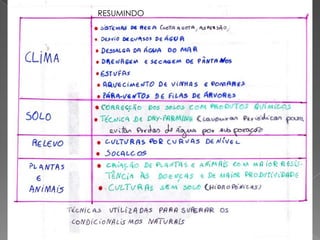 RESUMINDO
CLIMA
• SISTEMAS DE REGA (GOTA A GOTA, ASPERSÃO)
• DESVIO DE CURSOS DE ÁGUA
• DESSALGA DA ÁGUA DO MAR
• DRENAGEM E SECAGEM DE PÂNTANOS
• ESTUFAS
• AQUECIMENTO DE VINHAS E POMARES
• PÁRA-VENTOS DE FILAS DE ÁRVORES
SOLO
• CORRECÇÃO DOS SOLOS COM PRODUTOS QUÍMICOS
• TÉCNICA DE DRY-FARMING (lavouras periódicas para
evitar perdas de água por evaporação
RELEVO
• CULTURAS POR CURVAS DE NÍVEL
• SOCALCOS
PLANTAS
E
ANIMAIS
• CRIAÇÃO DE PLANTAS E ANIMAIS COM MAIOR RESIS-
TÊNCIA ÀS DOENÇAS E DE MAIOR PRODUTIVIDADE
• CULTURAS SEM SOLO (HIDROPÓNICAS)
TÉCNICAS UTILIZADAS PARA SUPERAR OS
CONDICIONALISMOS NATURAIS